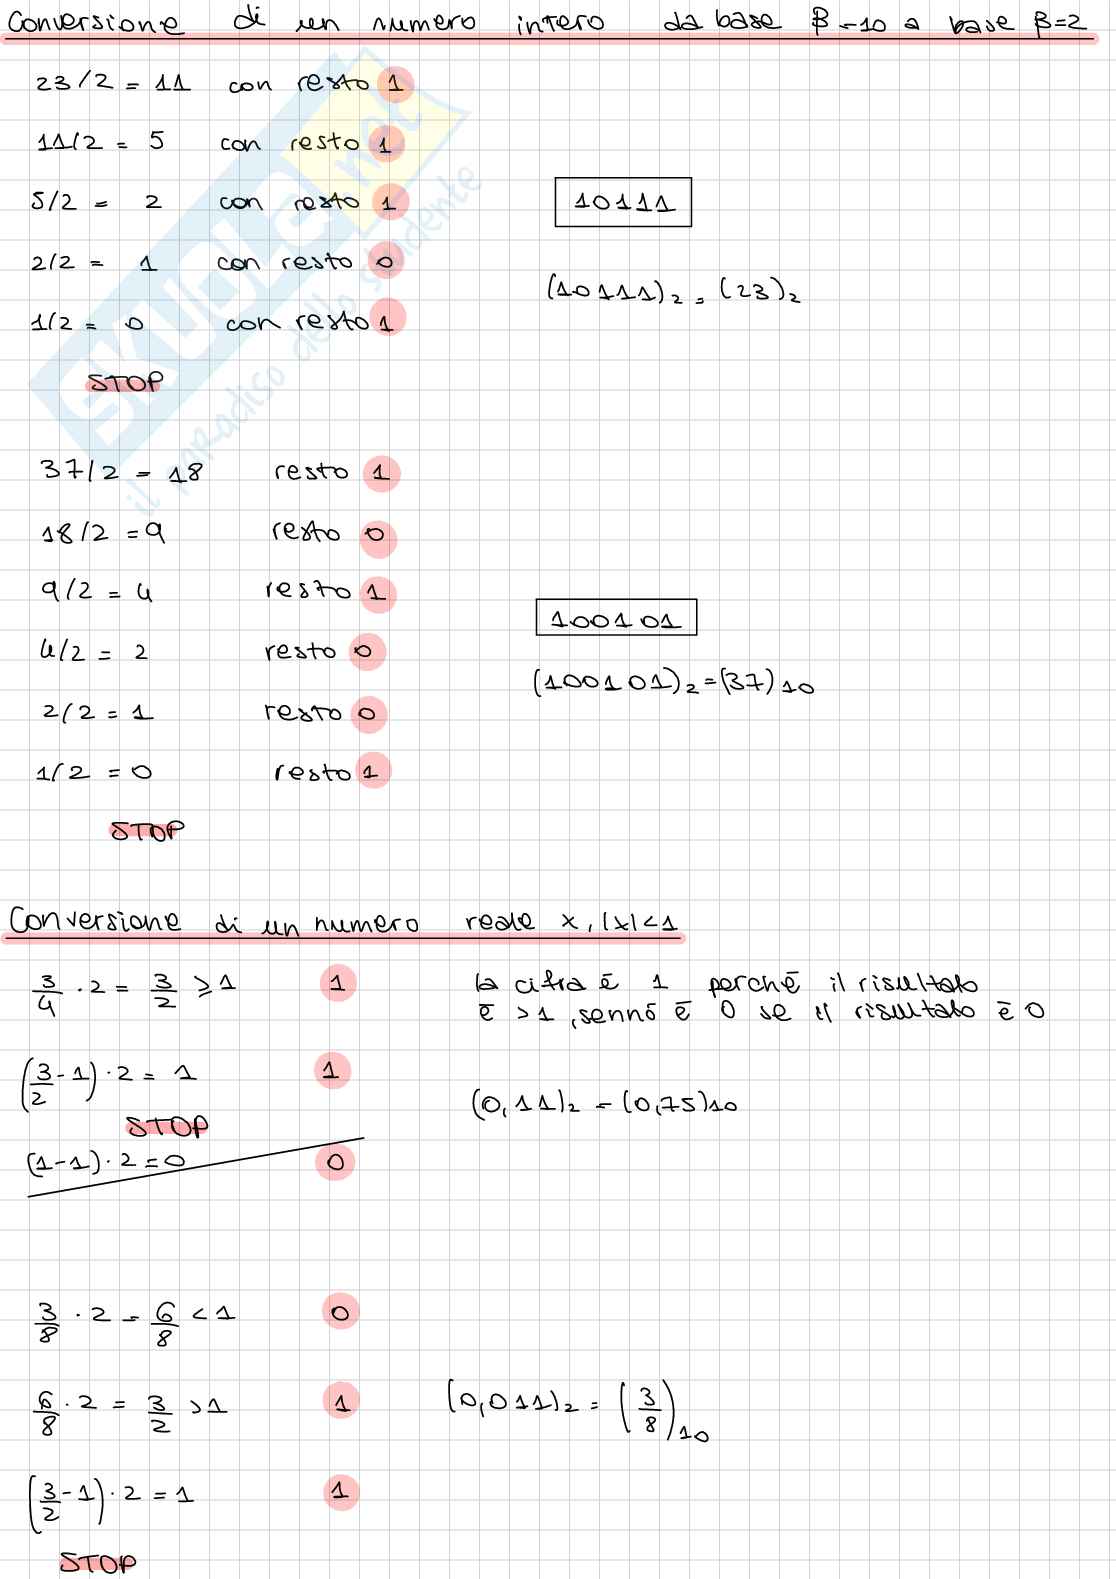 Conversione di un numero intero da base β=10 a base β=2
23/2 = 11 con resto 1
11/2 = 5 con resto 1
5/2 = 2 con resto 1
10111
2/2 = 1 con resto 0
(10111)₂ = (23)₂
1/2 = 0 con resto 1
STOP
SKUOLA.net
il paradiso dello studente
37/2 = 18 resto 1
18/2 = 9 resto 0
9/2 = 4 resto 1
100101
4/2 = 2 resto 0
(100101)₂ = (37)₁₀
2/2 = 1 resto 0
1/2 = 0 resto 1
STOP
Conversione di un numero reale x, |x|<1
3/4 · 2 = 3/2 ≥ 1 1
la cifra è 1 perché il risultato
è >1, sennò è 0 se il risultato è 0
(3/2 - 1) · 2 = 1 1
(0,11)₂ = (0,75)₁₀
STOP
(1-1) · 2 = 0 0
3/8 · 2 = 6/8 < 1 0
6/8 · 2 = 3/2 > 1 1
(0,011)₂ = (3/8)₁₀
(3/2 - 1) · 2 = 1 1
STOP